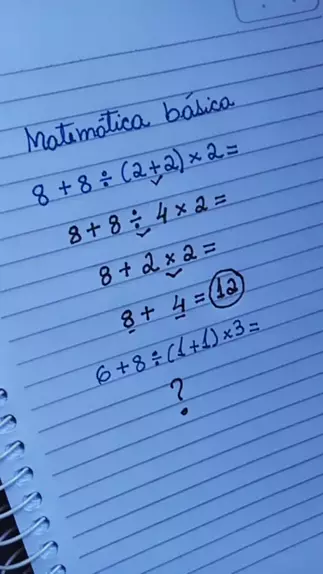 Matemática básica
8 + 8 ÷ (2 + 2) × 2 =
8 + 8 ÷ 4 × 2 =
8 + 2 × 2 =
8 + 4 = 12
6 + 8 ÷ (1 + 1) × 3 =
?